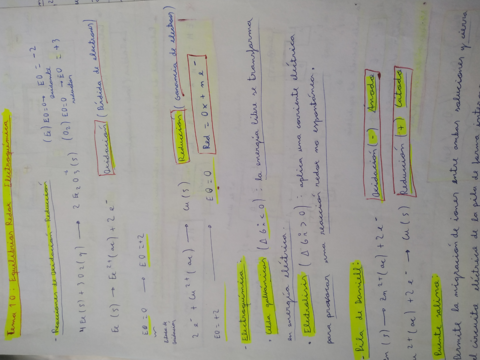 Tema 10: Equilibrio Redox. Electroquímica
- Reacciones de oxidación - Reducción
4 Fe (s) + 3 O2 (g) → 2 Fe2O3 (s)
(Fe) EO=0 → EO = -2
(O2) EO=0 → EO = +3
Fe (s) → Fe2+ (ac) + 2 e-
Oxidación (Pérdida de electrones)
EO=0 → EO=+2
2 e- + Cu2+ (ac) → Cu (s)
Reducción (Ganancia de electrones)
EO=+2 → EO=0
Red = Ox + n e-
- Electroquímica:
· Celda galvánica (ΔG < 0): la energía libre se transforma
en energía eléctrica.
· Electrolisis (ΔG > 0): aplica una corriente eléctrica
para producir una reacción redox no espontánea.
- Pila de Daniell:
Zn (s) → Zn2+ (ac) + 2 e- Oxidación (-) Ánodo
Cu2+ (ac) + 2 e- → Cu (s) Reducción (+) Cátodo
Puente salino:
Permite la migración de iones entre ambas soluciones y cierra
el circuito eléctrico de la pila de forma